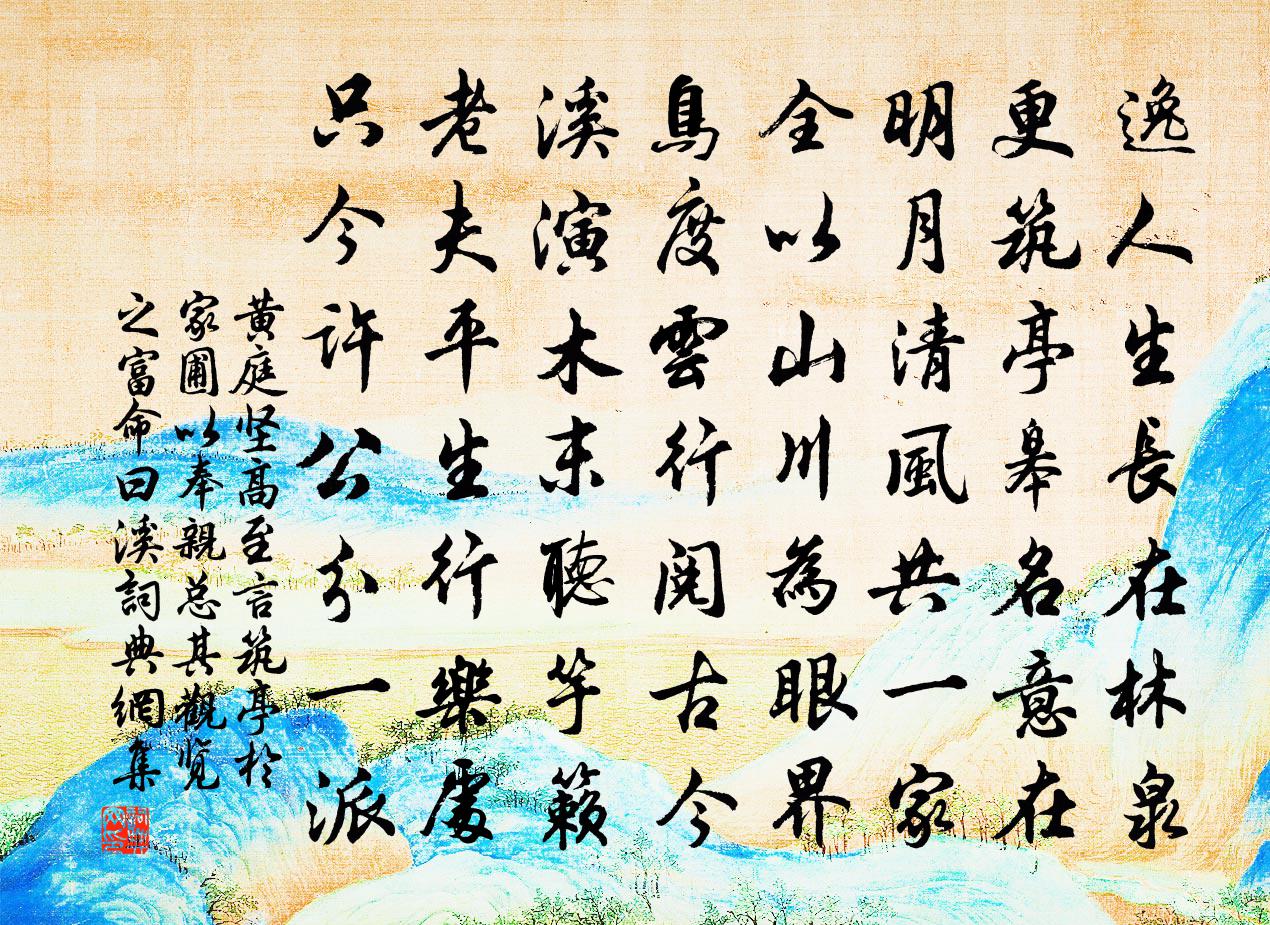 逸人生長在林泉
更筑亭皋名意在
明月清風共一家
全以山川為眼界
鳥度雲行閱古今
溪演木末聽竽籟
老夫平生行樂處
只今許公分一派
黄庭坚高至言筑亭於
家圃以奉親总其觀览
之富命曰溪詞典網集